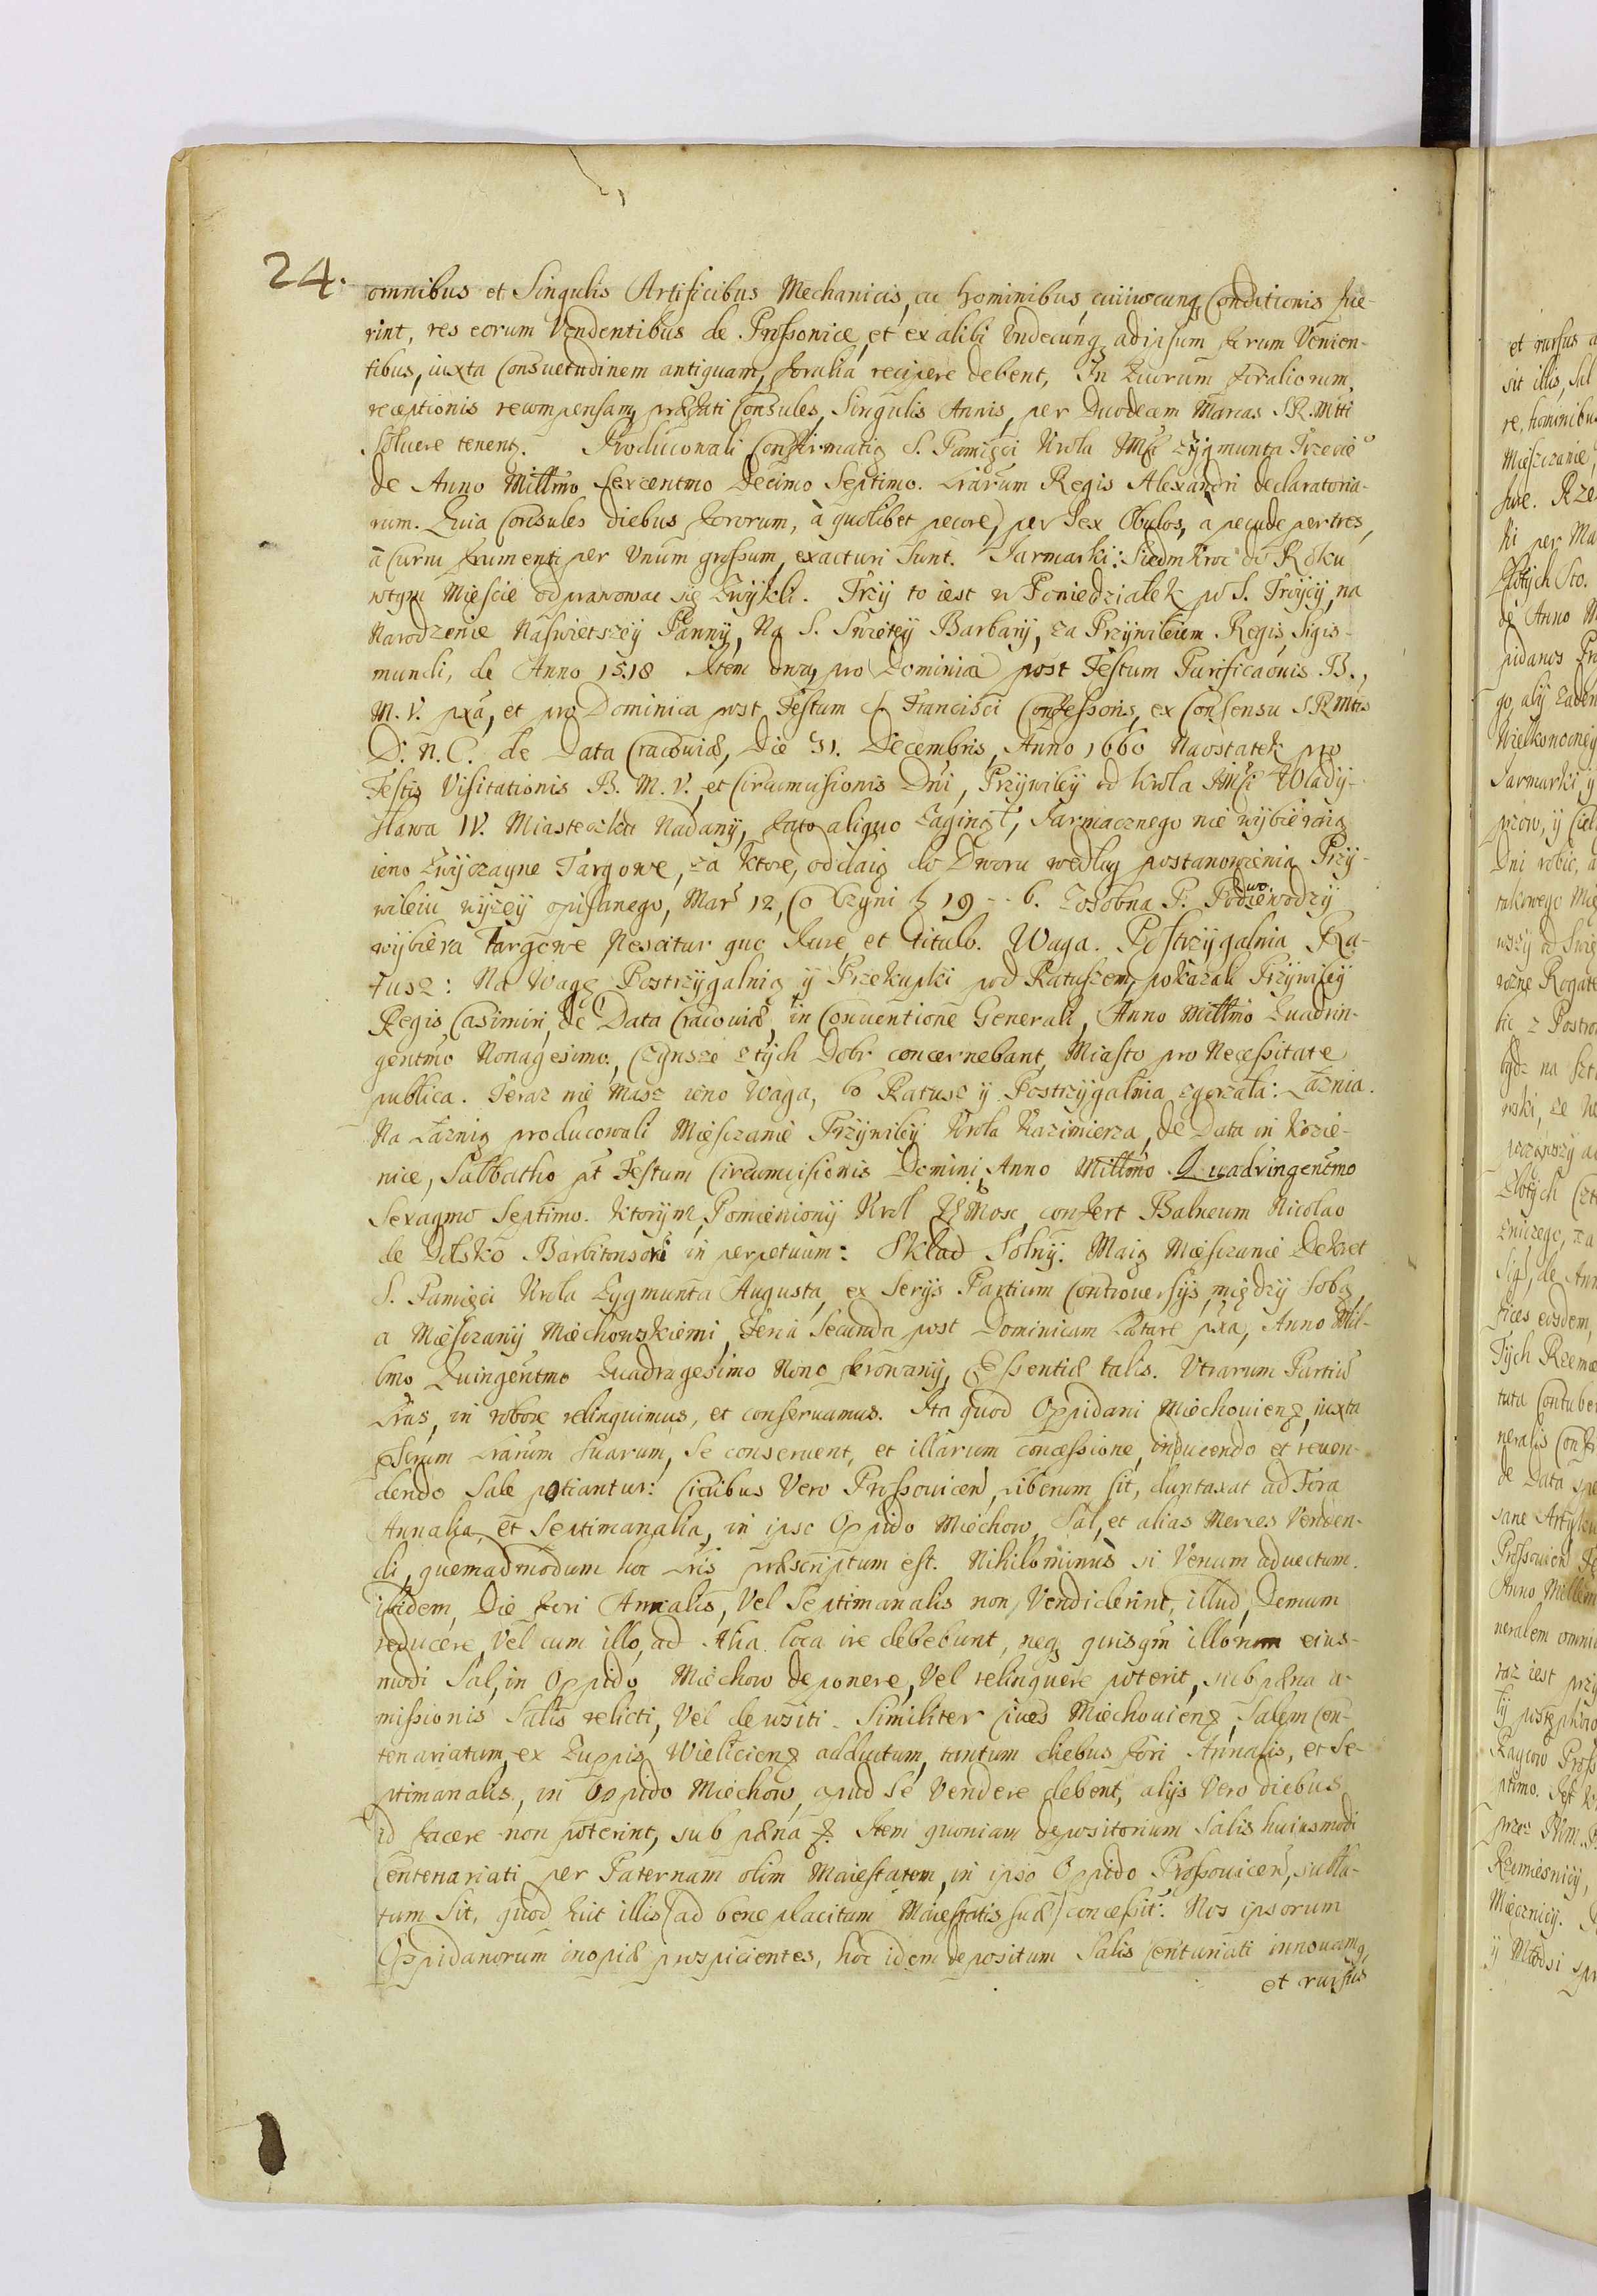 24.
omnibus et Singulis Artificibus Mechanicis, ac hominibus, cuiuscunq Conditionis fue-
rint, res eorum Vendentibus de Prossovice, et ex alibi Undecunq ad ipsum forum Venien-
tibus, iuxta Consuetudinem antiquam, foralia recipere debent, In Quorum foralionum
receptionis recompensam, præfati Consules, Singulis Annis, per Duodecem Marcas S.R.Mtti
Soluere tenent. Producowali Confirmatią S. Pamięci Krola JMśi Zygmunta Trzecie°
de Anno Millmo Sexcentmo Decimo Septimo. Lrarum Regis Alexandri declaratoria-
rum. Quia Consules diebus fororum, à quolibet pecore, per Sex Obulos, à pecude per tres,
à Curru frumenti per Unum grossum, exacturi Sunt. Jarmarki: Siedm kroc do Roku
wtym Mieście odprawować się Zwykli. Trzy to iest w Poniedziałek po S. Troycy, na
Narodzenie Naswietszey Panny, Na S. Swietey Barbary, za Przywileium Regis Sigis-
mundi, de Anno 1518 Item dwa, pro Dominica post Festum Purificaonis B.,
M. V. pxa, et pro Dominica post Festum S. Francisci Confessoris, ex Consensu S R Mttis
D. N. C. de Data Cracoviæ, Die 31. Decembris, Anno 1660 Naostatek pro
Festis Visitationis B. M. V., et Circumcisionis Dni, Przywiley od Krola JMśi Włady-
sława IV. Miasteczku Nadany, fato aliquo Zaginął, Jarmacznego nie wybieraią
ieno Zwyczayne Targowe, za ktore, oddaią do Dworu według postanowienia Przy-
wileiu wyzey opisanego, Mar 12, Co Czyni f 19 -- 6. Zosobna P. Podwoiewodzy
wybiera Targowe Nescitur quo Jure et titulo. Waga. Postrzygalnia Ra-
tusz: Na Wagę Postrzygalnią y Przekupki pod Ratuszem, pokazali Przywiley
Regis Casimiri, de Data Cracouiæ, in Conuentione Generali, Anno Millmo Quadrin-
gentmo Nonagesimo, Czynsze ztych Dobr concernebant Miasto pro Necessitate
publica. Teraz nie Masz ieno Waga, bo Ratusz y Postrzygalnia zgorzała: Łaznia.
Na Łaznią producowali Miesczanie Przywiley Krola Kazimierza, de Data in Kozie-
nice, Sabbatho pt Festum Circumcisionis Domini Anno Millmo Quadringentmo
Sexagmo Septimo. Ktorym Pomieniony Krol JMosc, confert Balneum Nicolao
de Dolsko Barbitonsori in perpetuum: Skład Solny. Maią Miesczanie Dekret
S. Pamięci Krola Zygmunta Augusta, ex Serijs Partium Controuersijs, między Sobą,
a Miesczany Miechowskiemi, Feria Secunda post Dominicam Lætare pxa, Anno Mil-
lmo Quingentmo Quadragesimo Nono ferowany, Essentiæ talis. Utrarum Partiu
Lras, in robore relinquimus, et conseruamus. Ita quod Oppidani Miechouien, iuxta
Lrarum Suarum, Se conseruent, et illarum concessione, inducendo et reuen-
dendo Sale potiantur: Ciuibus Vero Prossouicen, Liberum sit, duntaxat ad Fora
Annalia et Septimanalia, in ipso Oppido Miechow, Sal, et alias Merces Venden-
di, quemadmodum hoc Lris præscriptum est. Nihilominus si Venum aduectum
ibidem, Die fori Annalis, Vel Septimanalis non Vendiderint, illud, Demum
reducere, Vel cum illo, ad Alia loca ire debebunt, neq quisqm illorum eius-
modi Sal, in Oppido Miechow deponere, Vel relinquere poterit, sub pæna a-
missionis Salis relicti, Vel depositi. Similiter Ciues Miechouien, Salem Cen-
tenariatum, ex Zuppis Wielicien adductum, tantum diebus fori Annalis, et Se-
ptimanalis, in Oppido Miechow, apud Se Vendere debent, alijs Vero diebus
id facere non poterint, sub pæna Item quoniam depositorium Salis huiusmodi
Centenariati per Paternam olim Maiestatem, in ipso Oppido Prossouicen, subla-
tum Sit, quod hic illis (ad bene placitum Maiestatis Suæ) concessit. Nos ipsorum
Oppidanorum inopiæ prospicientes, hoc idem depositum Salis Centuriati innouamq,
et rursus